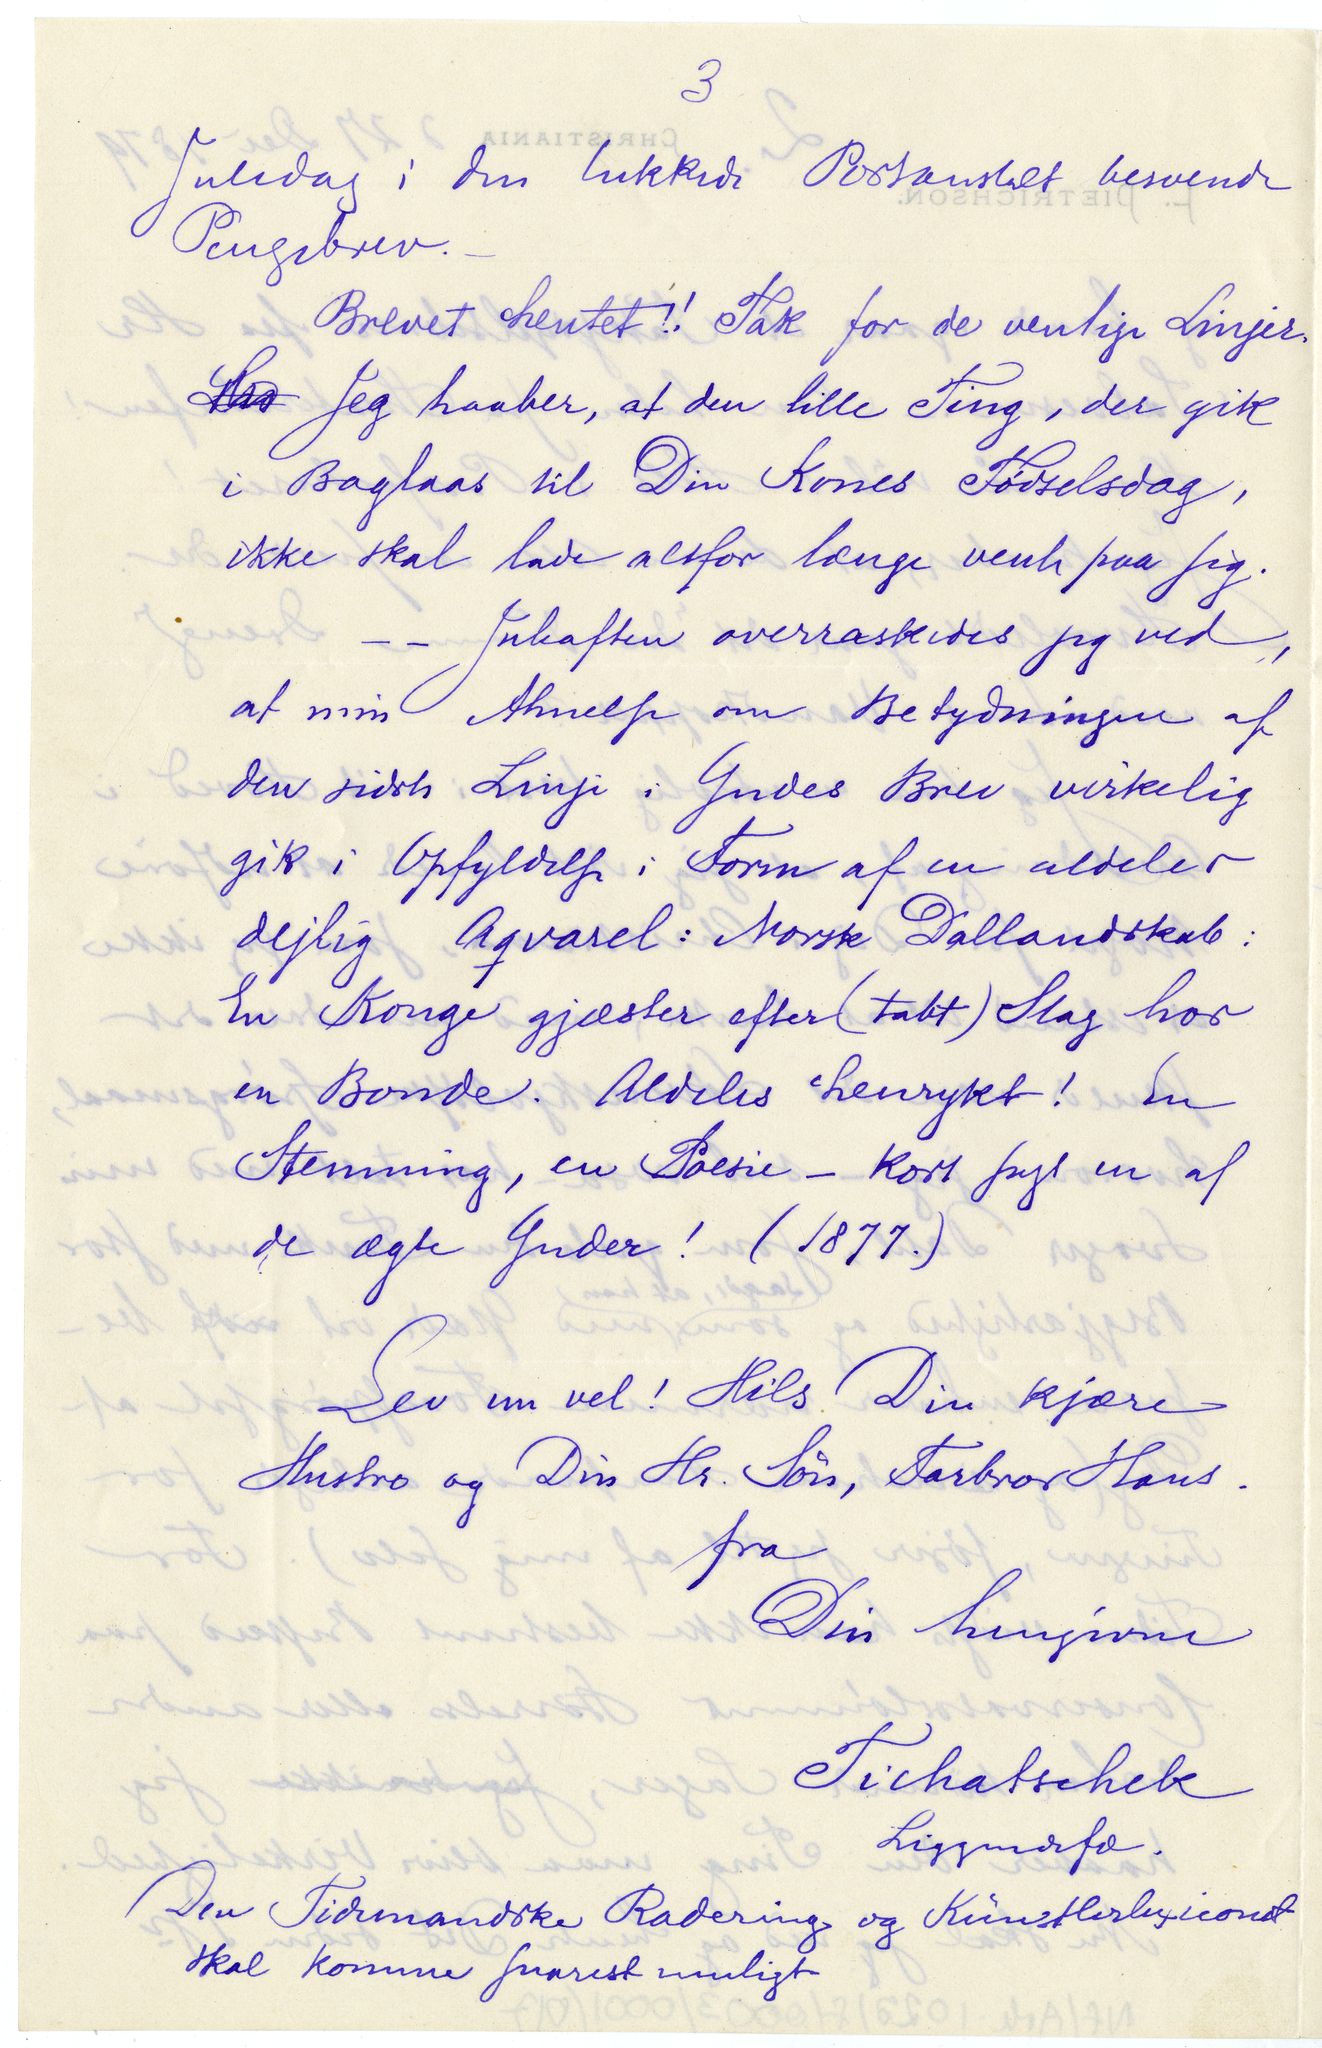 3
Juledag i den lukkede Postanstalt beroende
Pengebrev. —
Brevet hentet!! Tak for de venlige Linjer.
Jeg haaber, at den lille Ting, der gik
i Baglaas til Din Kones Födselsdag,
ikke skal lade altfor længe vente paa sig.
— — Juleaften overraskedes jeg ved,
at min Ahnelse om Betydningen af
den sidste Linje i Gudes Brev virkelig
gik i Opfyldelse i Form af en aldeles
dejlig Aqvarel: Norsk Dallandskab:
En Konge gjæster efter (tabt) Slag hos
en Bonde. Aldeles henrykt! En
Stemning, en Poesie — kort sagt en af
de ægte Guder! (1877.)
Lev nu vel! Hils Din kjære
Hustro og Din Hr. Sön, Farbror Hans.
fra
Din hengivne
Tichatschek
Liggendefæ.
Den Tidemandske Radering og Künstlerlexiconet
skal komme snarest muligt